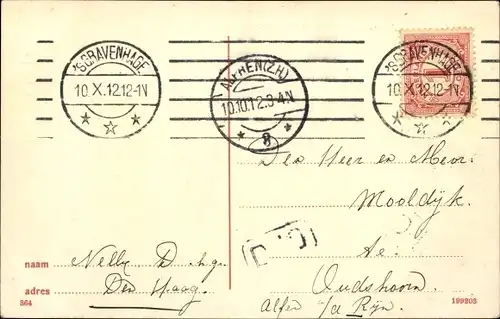 'SGRAVENHAGE
10.X.12.12-1N
ALFEN(Z.H.)
10.10.12.3-4N
8
'SGRAVENHAGE
10.X.12.12-1N
1
Den Heer en Mevr.
Mooldijk
Te:
Oudshoorn
Alfen a/d Rijn.
naam Nelly D. h.g.
adres Den Haag.
564
199203